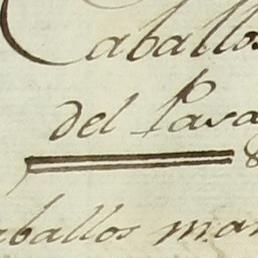 Caballos
del Pasa
aballos man